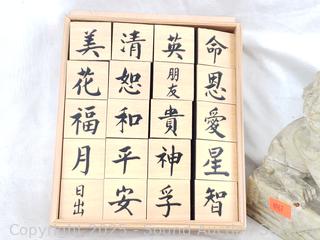 美 清 英 命
花 恕 朋友 恩
福 和 貴 愛
月 平 神 星
日出 安 孚 智
Copyright 2025 - Sound Auction Service